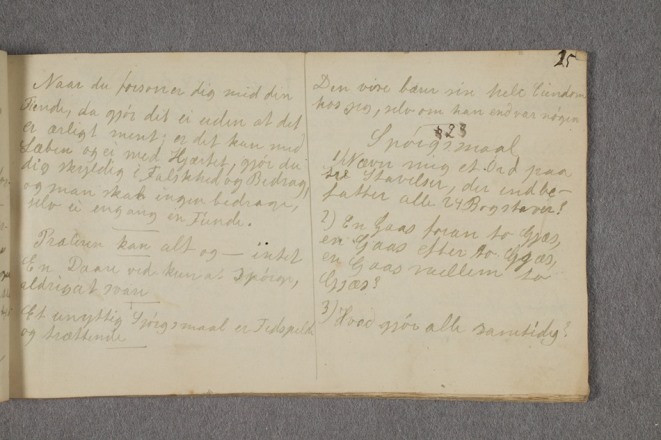 Naar du forsoner dig med din
Fiende, da gjör det ei uden at det
er ærligt ment; er det kun med
Læben og ei med Hjærtet, gjör du
dig skyldig i Falskhed og Bedrag,
og man skal ingen bedrage,
selv ei engang en Fiende.
Præten kan alt og — intet
En Daare ved kun at Spörge,
aldrig at svare
Et unyttig Spörgsmaal er Tidsspilde
og trættende
25
Den vise bær sin hele Eiendom
hos sig, selv om han end var nögen
23
Spörgsmaal
1) Nævn mig et Ord paa
tre Stavelser, der indbe-
fatter alle 24 Bogstaver?
2) En Gaas foran to Gjæs,
en Gaas efter to Gjæs,
en Gaas mellem to
Gjæs?
3) Hvad gjör alle samtidig?